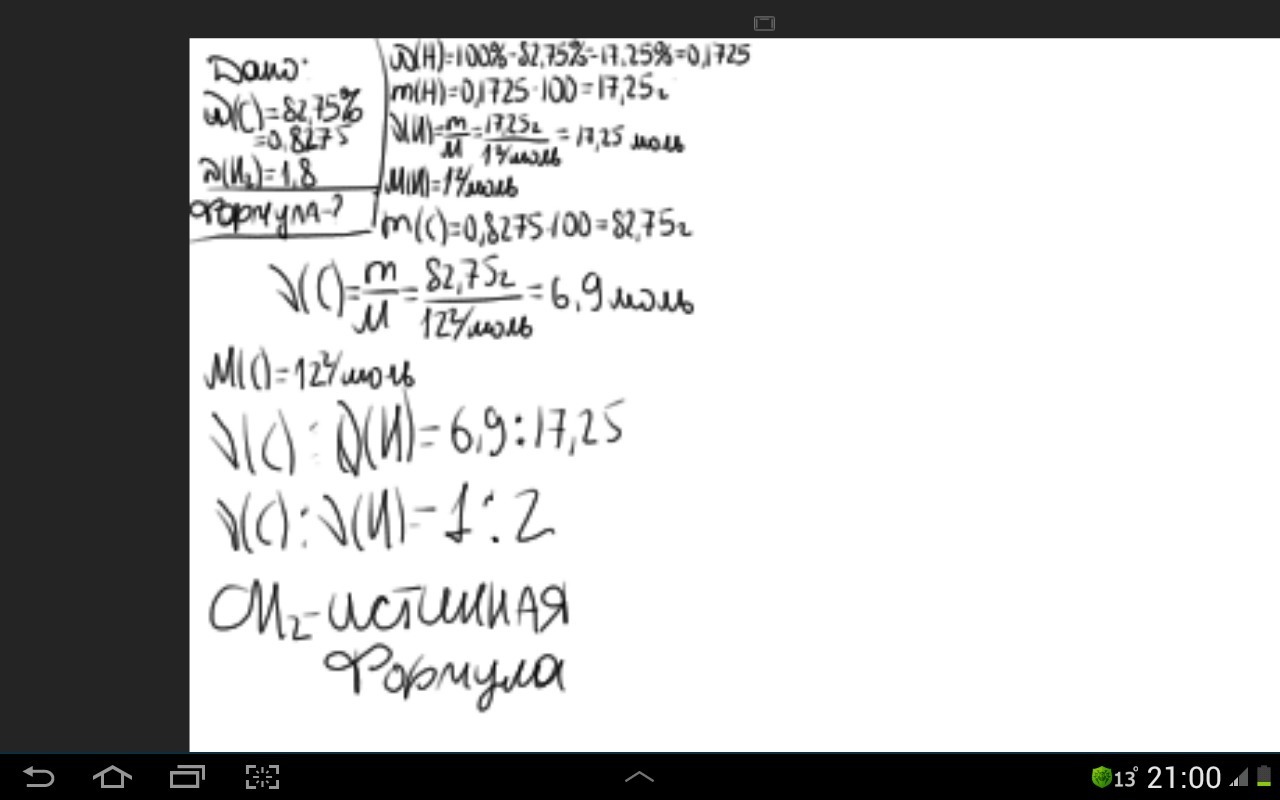 Дано:
ω(C)=82,75%
=0,8275
D(H₂)=1,8
Формула-?
ω(H)=100%-82,75%=17,25%=0,1725
m(H)=0,1725·100=17,25г
ν(H)=m/M=17,25г/1г/моль=17,25 моль
M(H)=1г/моль
m(C)=0,8275·100=82,75г
ν(C)=m/M=82,75г/12г/моль=6,9моль
M(C)=12г/моль
ν(C):ν(H)=6,9:17,25
ν(C):ν(H)=1:2
CH₂-истинная
Формула
13°
21:00